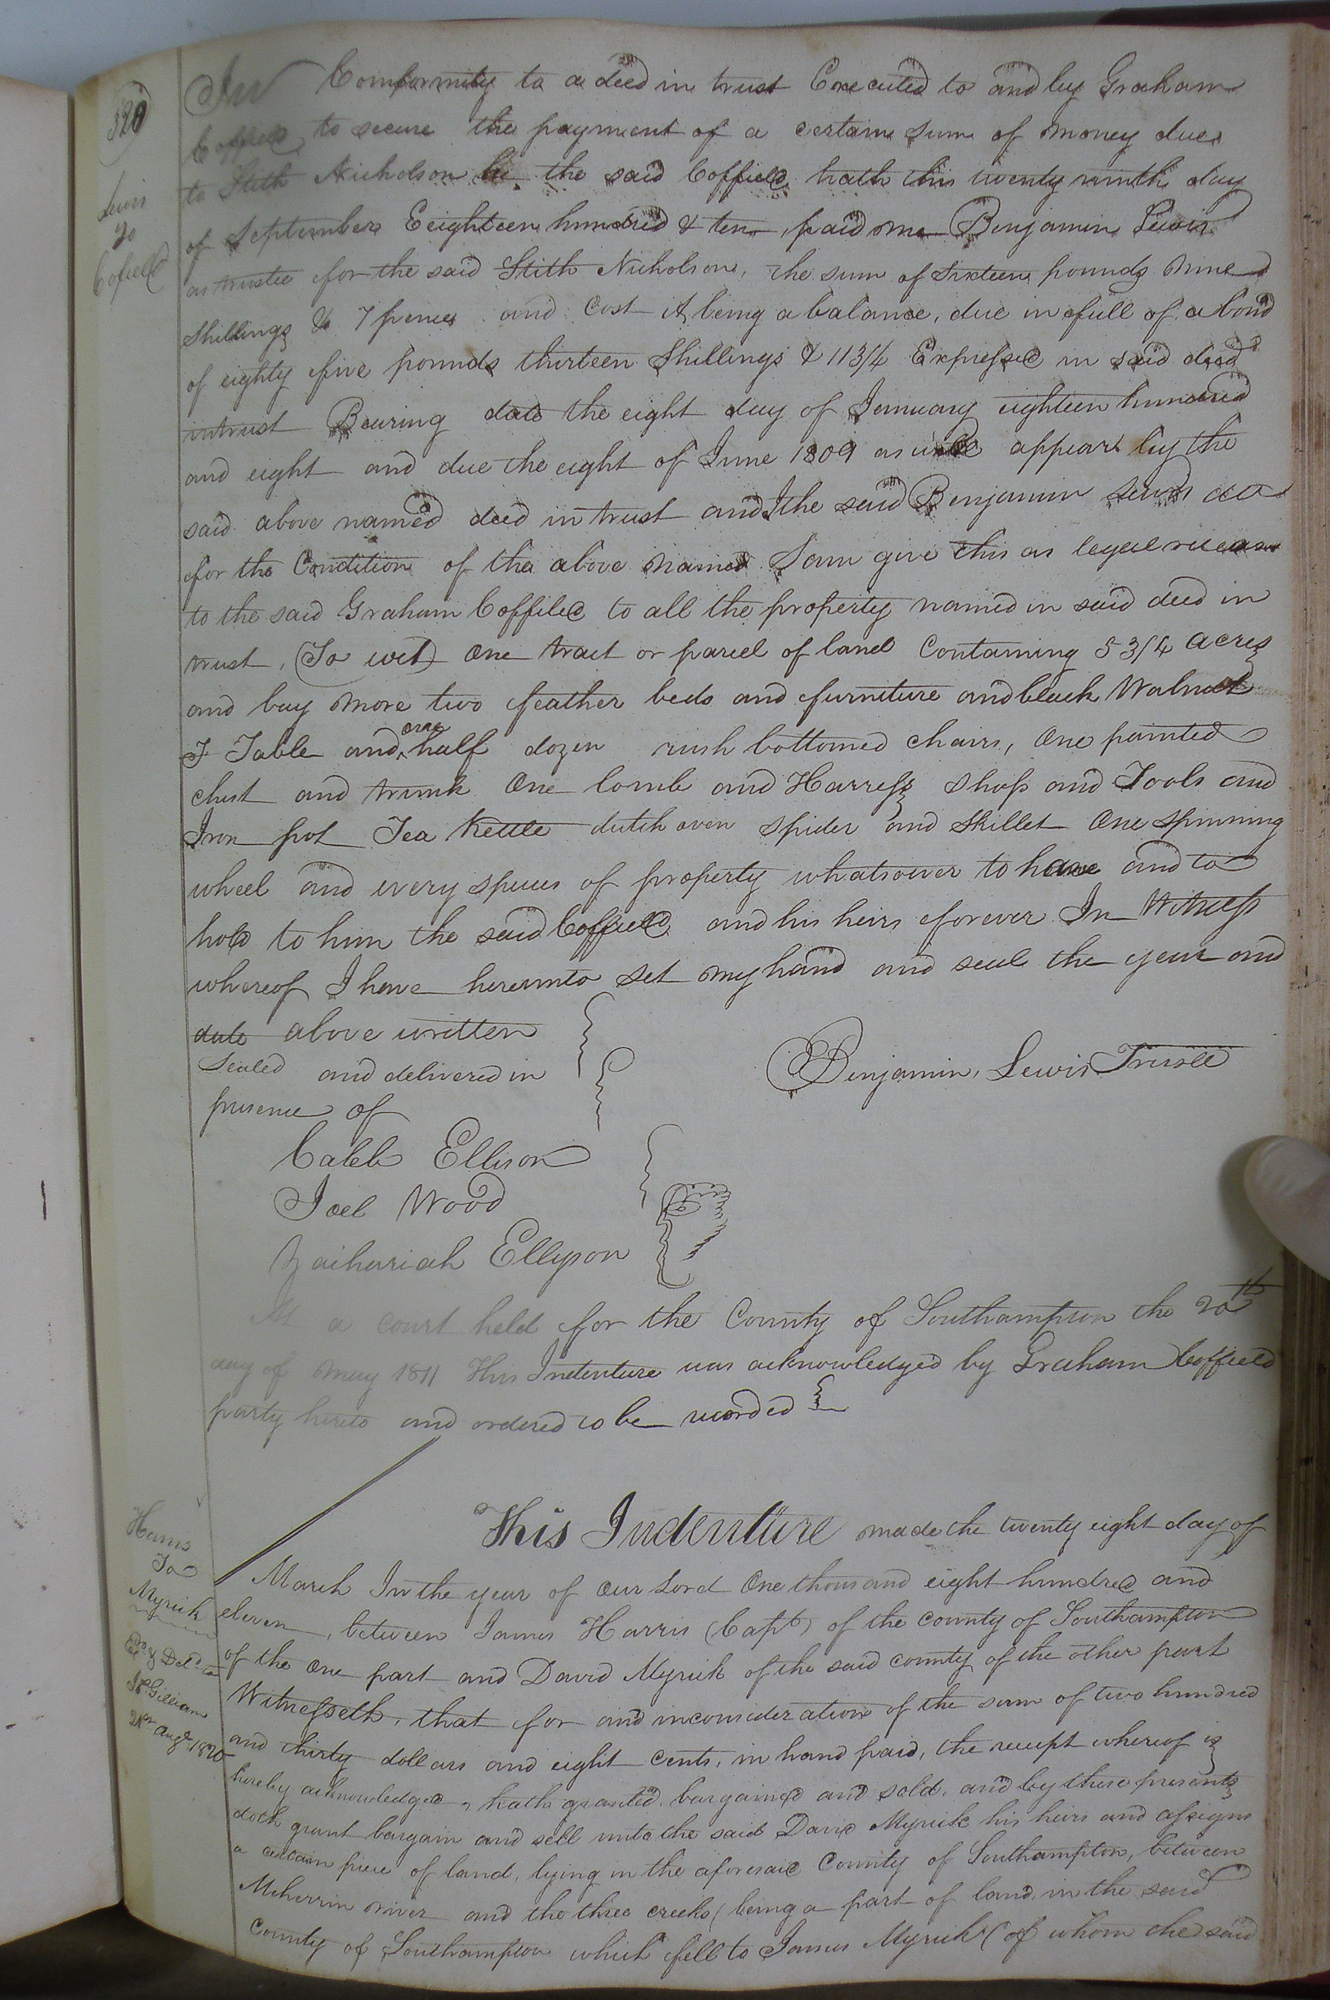 520
In Conformity to a deed in trust Executed to and by Graham
Coffield to secure the payment of a certain sum of money due
to Stith Nicholson the said Coffield hath this twenty ninth day
of September Eeighteen hundred & ten, paid me Benjamin Lewis
as trustee for the said Stith Nicholson, the sum of Sixteen pounds nine
shillings & 7 pence and Cost it being a balance, due in full of a bond
of eighty five pounds thirteen Shillings & 11 3/4 Expressed in said deed
intrust Bearing date the eight day of January eighteen hundred
and eight and due the eight of June 1809 as will appear by the
said above named deed in trust and I the said Benjamin Lewis
for the Condition of the above named Sum give this as legal release
to the said Graham Coffield to all the property named in said deed in
trust, (To wit) One tract or parcel of land Containing 53/4 acres
and bay more two feather beds and furniture and black Walnut
Table and one half dozen rush bottomed chairs, One painted
chest and trunk One lomb and Harress shop and Tools and
Iron pot Tea Kettle dutch oven spider and skillet One spinning
wheel and every species of property whatsoever to have and to
hold to him the said Coffield and his heirs forever In Witness
whereof I have hereunto set my hand and seal the year and
date above written
Sealed and delivered in
presence of
Benjamin Lewis Trusee
Caleb Ellison
Joel Wood
Zachariah Ellyson
At a court held for the County of Southampton the 20th
day of may 1811 This Indenture was acknowledged by Graham Coffield
party hereto and ordered to be recorded
Lewis
To
Cofield
This Indenture made the twenty eight day of
March In the year of our Lord One thousand eight hundred and
eleven, between James Harris (Capt) of the county of Southampton
of the One part and David Myrick of the said county of the other part
Witnesseth, that for and inconsideration of the sum of two hundred
and thirty dollars and eight cents, in hand paid, the receipt whereof is
hereby acknowledged, hath granted, bargained and sold, and by these presents
doth grant bargain and sell unto the said David Myrick his heirs and assigns
a certain piece of land, lying in the aforesaid County of Southampton, between
Meherrin river and the three creeks (being a part of land in the said
County of Southampton which fell to James Myrick (of whom the said
Harris
To
Myrick
Deld to
Gilliam
Augt 1820